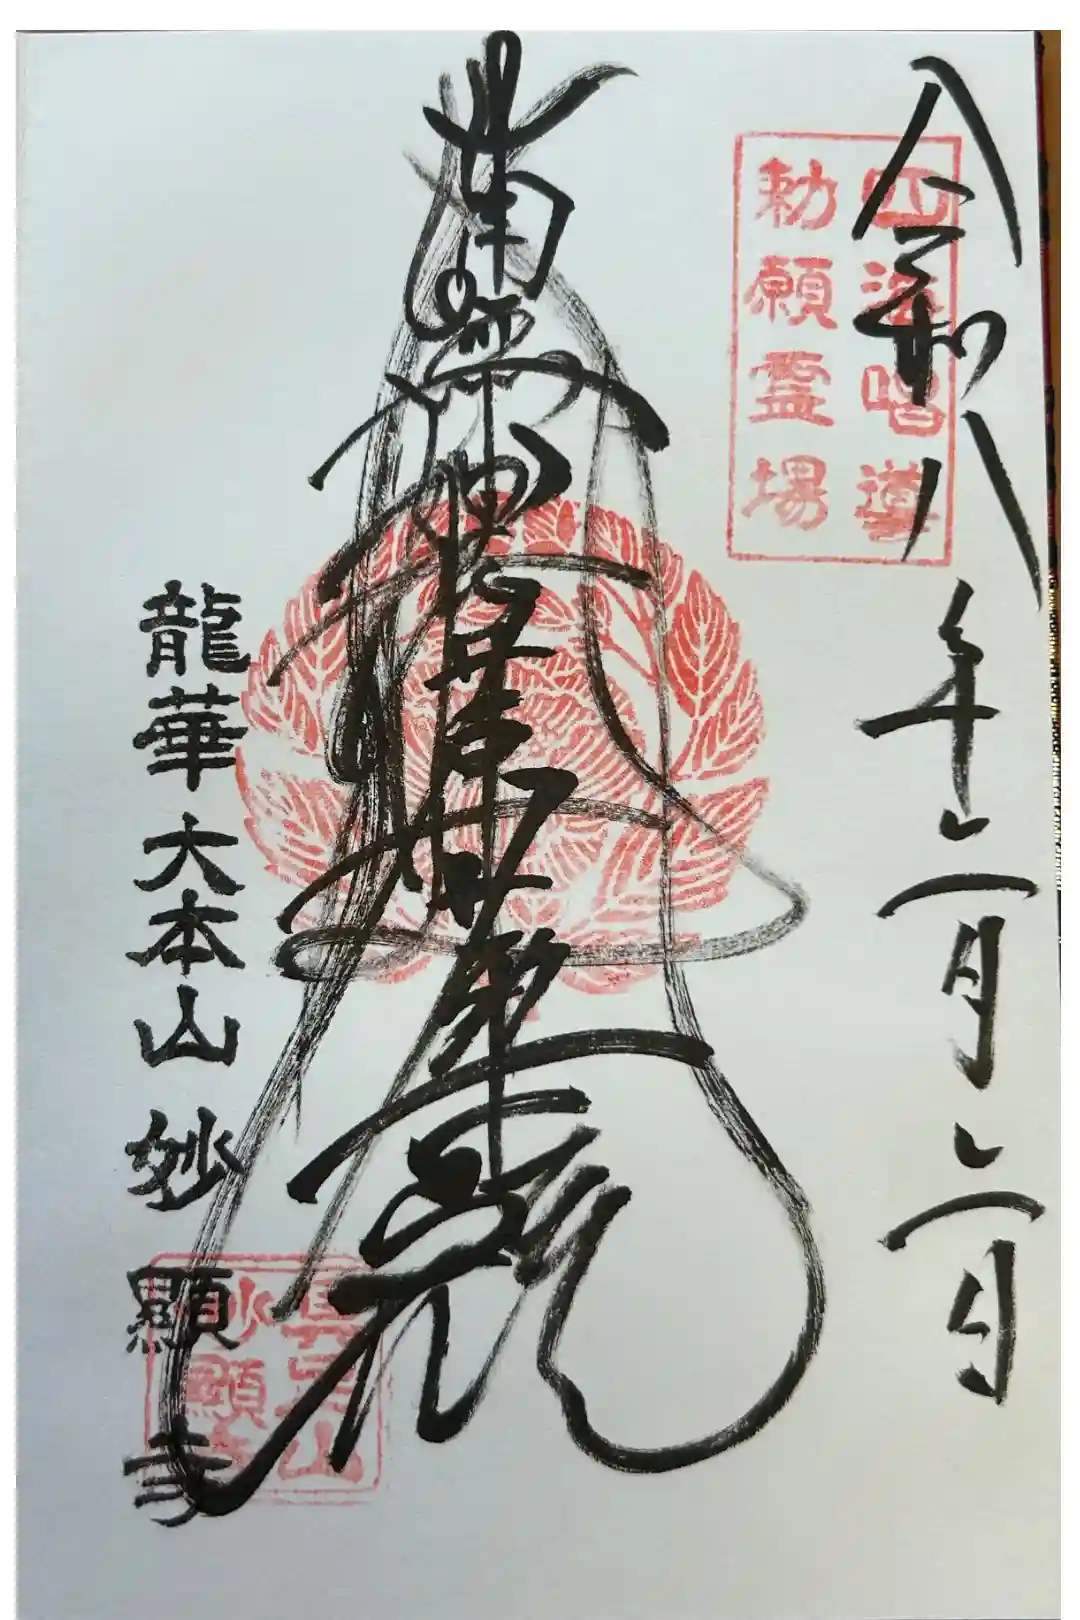 令和八年二月二日
四海唱導
勅願霊場
南無妙法蓮華経
龍華大本山妙顯寺
具足山
妙顯寺